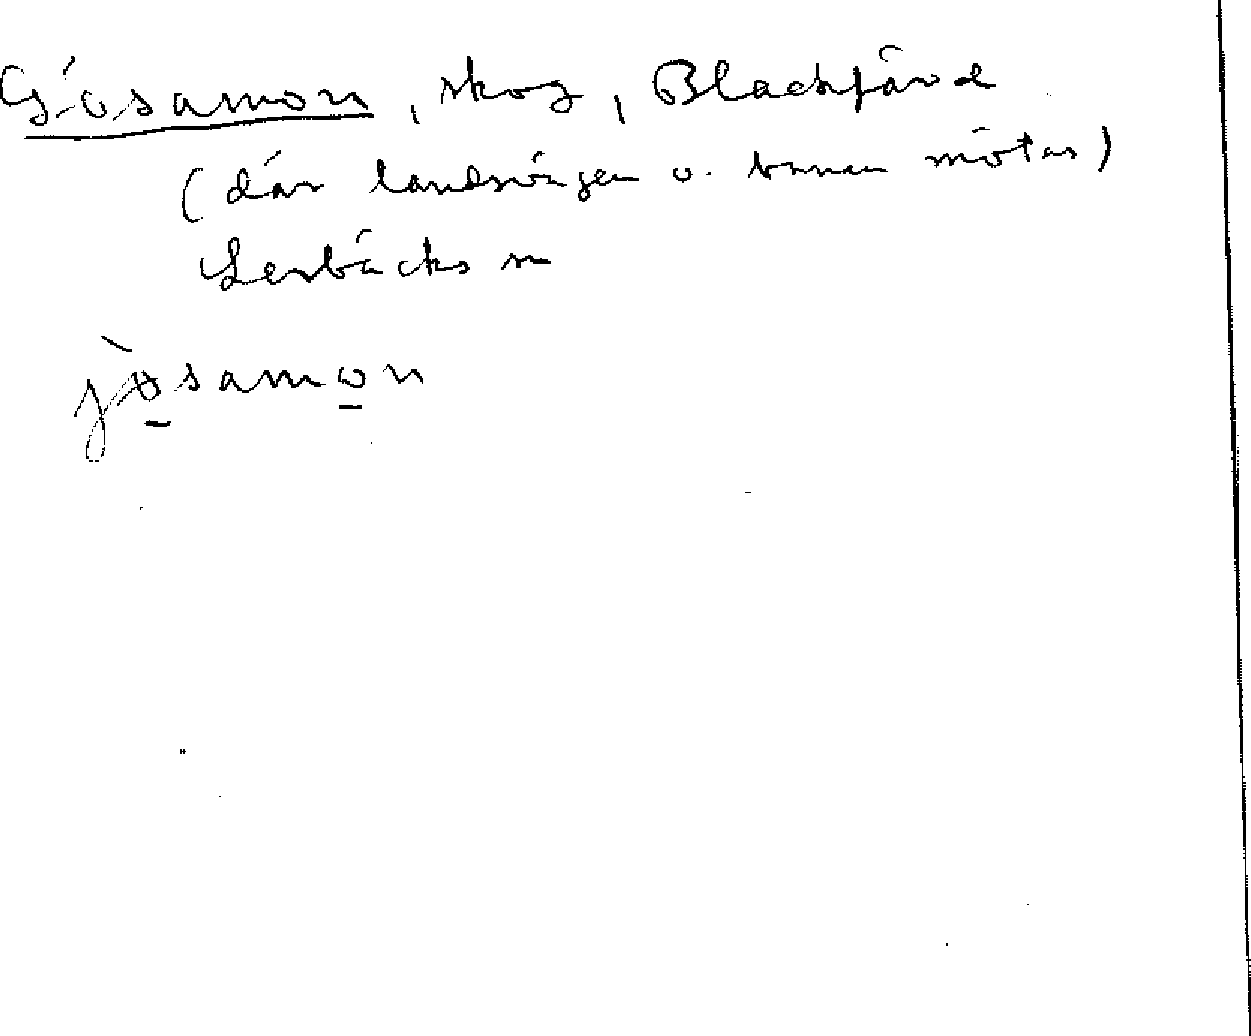 Gösamon, skog,
(där landsvägen o. banan mötas)
Lerbäcks sn
jòsamon